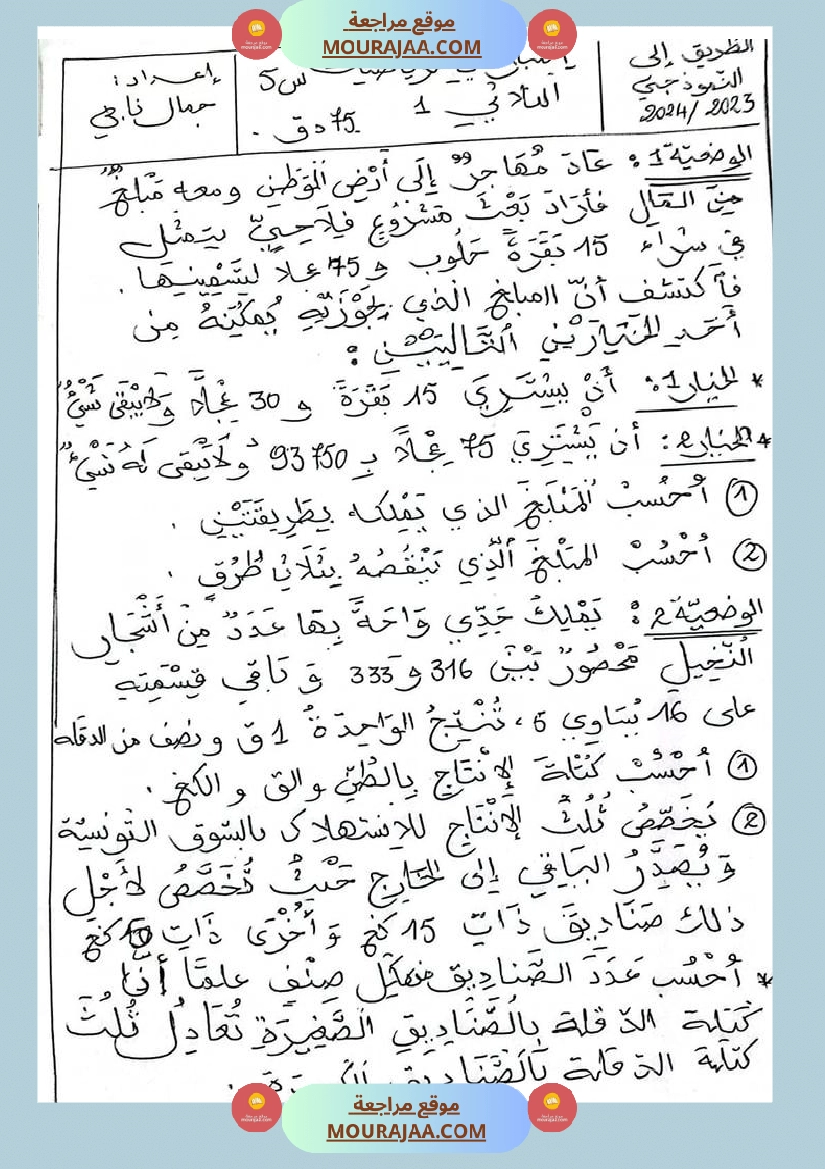 موقع مراجعة
MOURAJAA.COM
الطريق إلى
النموذجي
2024/2023
الثلاثي 1
س5
75 دق.
إعداد:
جمال ناجي
الوضعيّة 1: عَادَ مُهَاجِرٌ إِلَى أَرْضِ الوَطَنِ ومعه مَبْلَغٌ
مِنَ المَالِ فَأَرَادَ بَعْثَ مَشْرُوعٍ فِلَاحِيٍّ يتمثل
في شراء 15 بَقَرَةً حَلُوب و 75 عجلا لِتَسْمِينِهَا.
فاكتشف أنّ المبلغ الذي بِحَوْزَتِهِ يُمَكِّنُهُ مِن
أَحَدِ الخِيَارَيْنِ التَّالِيَيْنِ:
* الخيار 1: أَنْ يَشْتَرِيَ 15 بَقَرَةً و 30 عِجْلًا وَلَا يَبْقَى شَيْءٌ
* الخيار 2: أن يَشْتَرِيَ 75 عِجْلًا بِـ 93750 وَلَا يَبْقَى لَهُ شَيْءٌ
① أَحْسُبُ المَبْلَغَ الذي يَمْلِكه بِطَرِيقَتَيْنِ.
② أَحْسُبُ المَبْلَغَ الَّذِي يَنْقُصُهُ بِثَلَاثِ طُرُقٍ.
الوضعيّة 2: يَمْلِكُ جَدِّي وَاحَةً بِهَا عَدَدٌ مِنْ أَشْجَارِ
النَّخِيلِ مَحْصُورٌ بَيْنَ 316 و 333 وَ بَاقِي قِسْمَتِهِ
على 16 يُسَاوِي 6، تُنْتِجُ الوَاحِدَةُ 1 ق و نصف من الدقلة
① أَحْسُبُ كُتْلَةَ الإِنْتَاجِ بِالطّنِّ والق و الكغ.
② يُخَصِّصُ ثُلُثَ الإِنْتَاجِ للاِستهلاك بالسّوق التّونسيّة
وَيُصَدِّرُ البَاقِي إلى الخَارِجِ حَيْثُ تُخَصَّصُ لِأَجْلِ
ذلك صَنَادِيقَ ذَاتِ 15 كغ وَ أُخْرَى ذَاتِ كغ
* أَحْسُب عَدَدَ الصَّنادِيق من كل صِنْفٍ علمًا أنّ
كُتلة الدّقلة بالصَّنَادِيقِ الصَّغِيرَةِ تُعَادِلُ ثُلُثَ
كتلة الدّقلة بالصَّنَادِيقِ
موقع مراجعة
MOURAJAA.COM